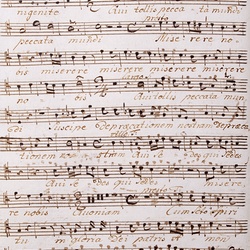 nigenite Qui tollis pecca ta mundi
peccata mundi Mise re re no
bis miserere miserere miserere mise re re
no bis Qui tollis peccata mun
di Suscipe Deprecationem nostram Depreca
tionem nostram Qui se des qui sedes
Qui se des qui sedes misere
re nobis Quoniam Cum Sancto spiri
tu in gloria Dei patris Amen